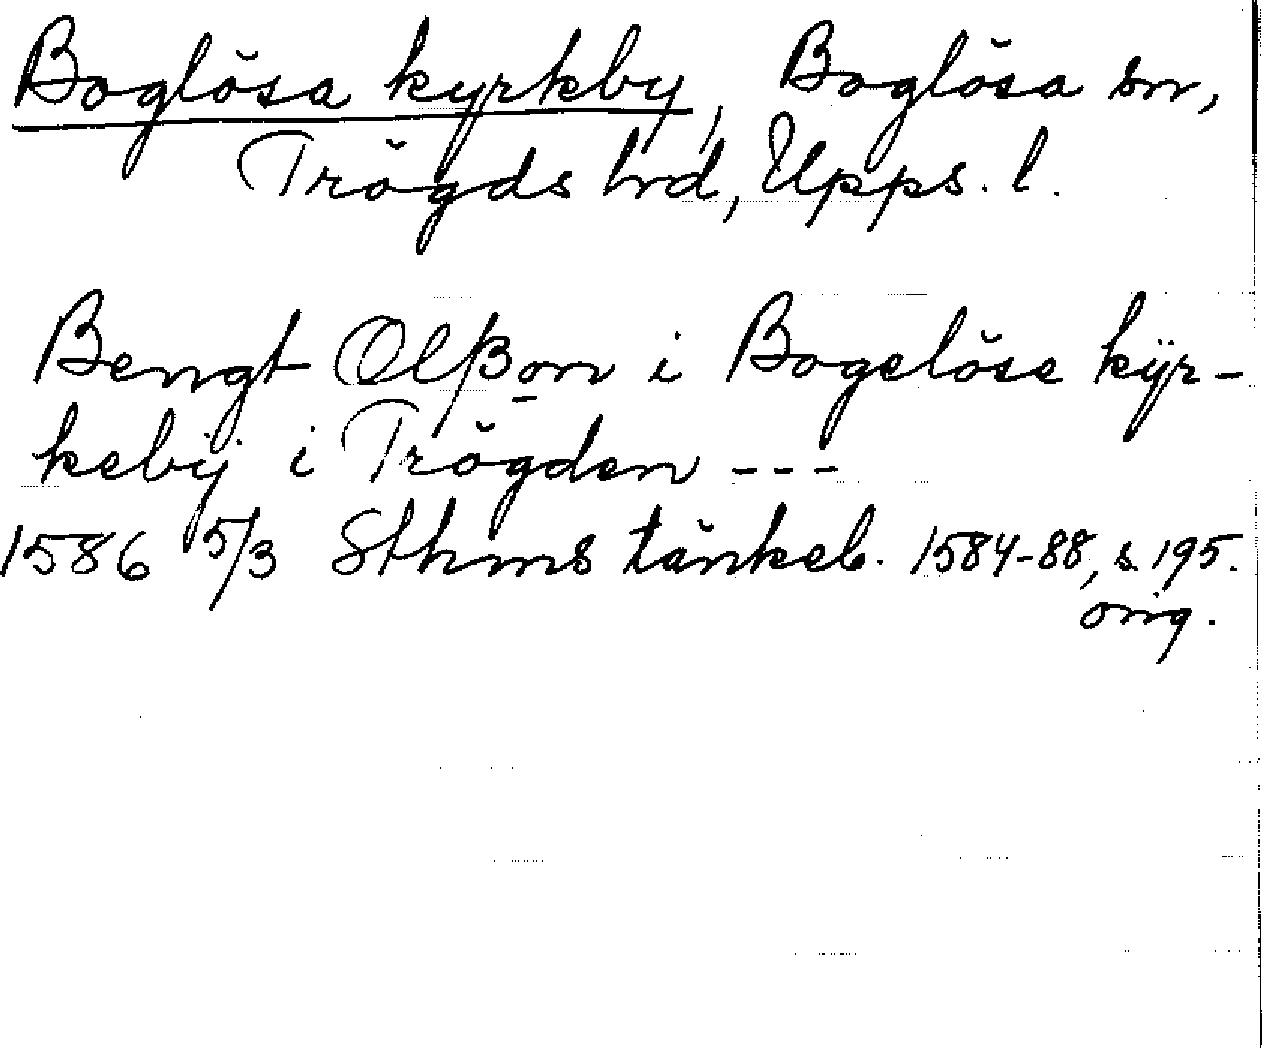 Boglösa kyrkby, Boglösa sn,
Trögds hrd, Upps. l.
Bengt Olßon i Bogelöse kÿr-
kebÿ i Trögden ---
1586 5/3 Sthms tänkeb. 1584-88, s. 195.
orig.